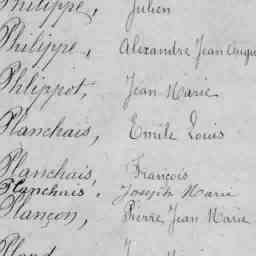 Philippe, Julien
Philippe, Alexandre Jean
Phlippot, Jean Marie
Planchais, Emile Louis
Planchais, François
Planchais, Joseph Marie
Plançon, Pierre Jean Marie